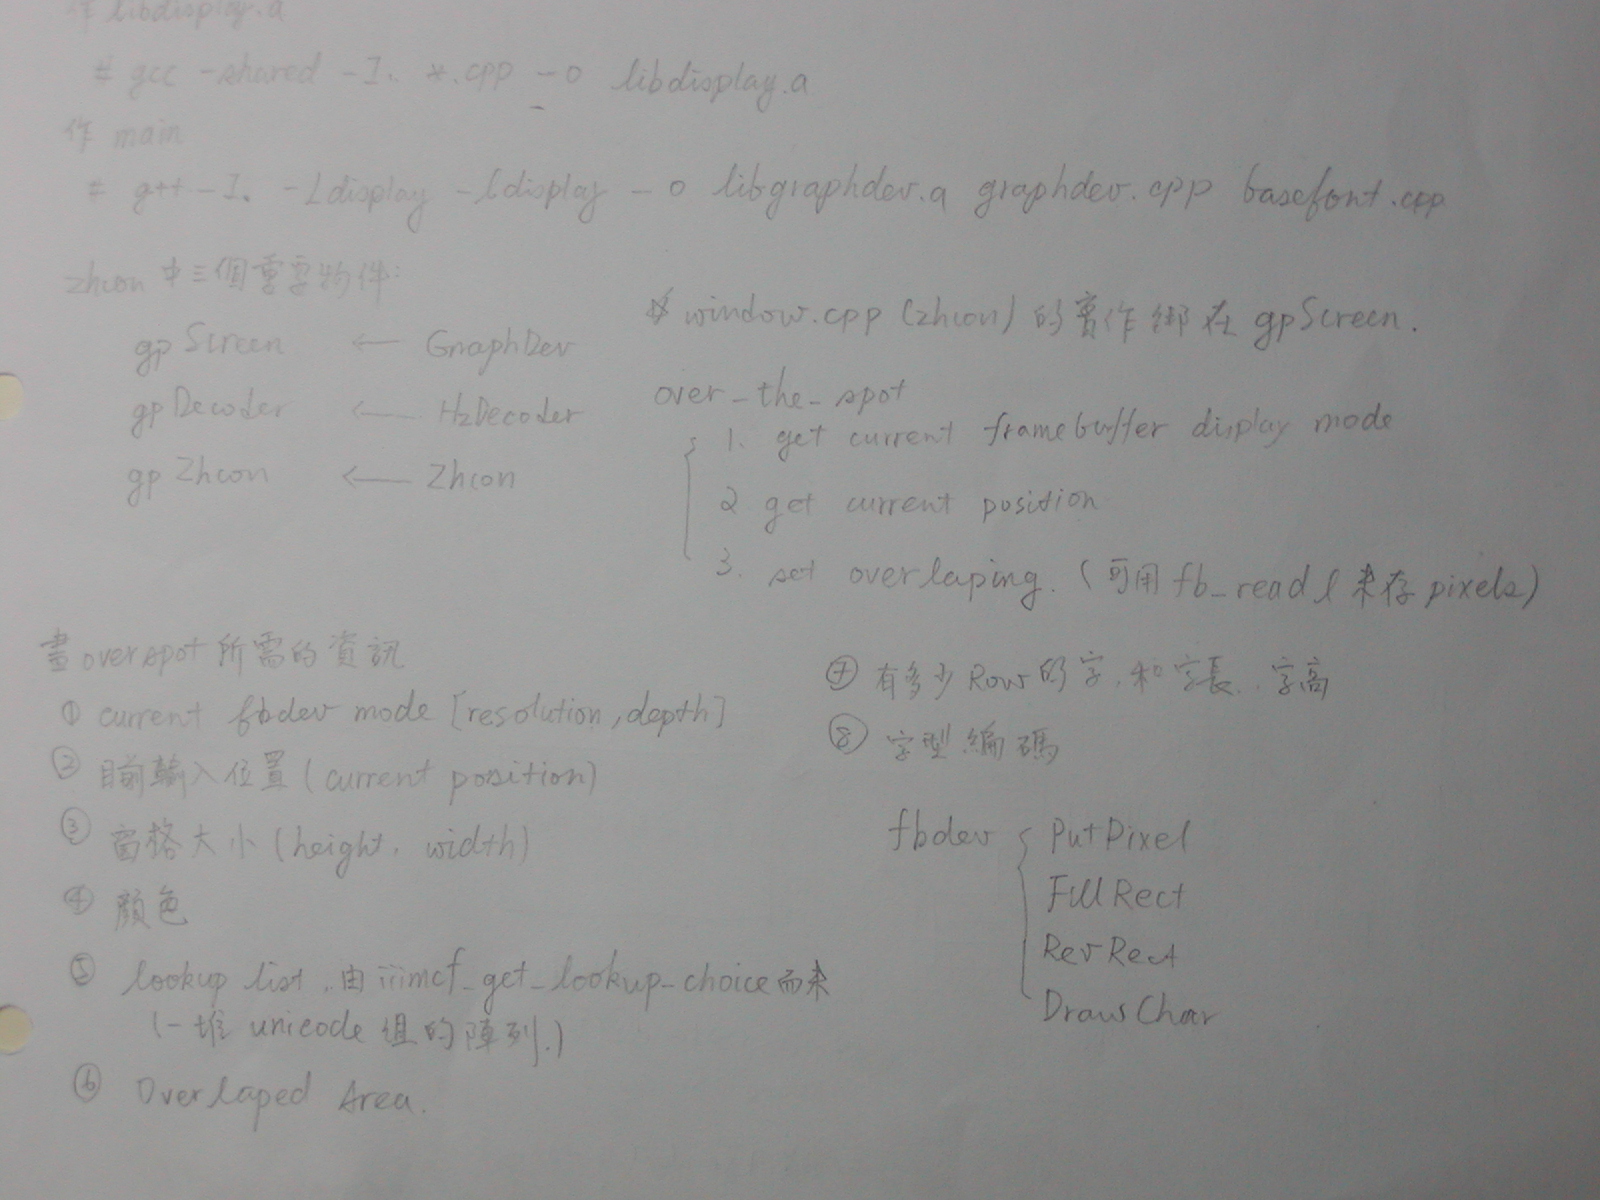 作 libdisplay.a
# gcc -shared -I. *.cpp -o libdisplay.a
作 main
# g++ -I. -Ldisplay -ldisplay -o libgraphdev.a graphdev.cpp basefont.cpp
zhcon 中三個重要物件:
gpScreen ← GraphDev
gpDecoder ← HzDecoder
gpZhcon ← Zhcon
※ window.cpp (zhcon) 的實作綁在 gpScreen.
over_the_spot
1. get current framebuffer display mode
2 get current position
3. set overlaping. (可用 fb_readl 來存 pixels)
畫 overspot 所需的資訊
① current fbdev mode [resolution, depth]
② 目前輸入位置 (current position)
③ 窗格大小 (height, width)
④ 顏色
⑤ lookup list, 由 iiimcf_get_lookup_choice 而來
(一堆 unicode 組的陣列.)
⑥ Overlaped Area.
⑦ 有多少 Row 的字, 和字長, 字高
⑧ 字型編碼
fbdev { PutPixel
FillRect
RevRect
DrawChar